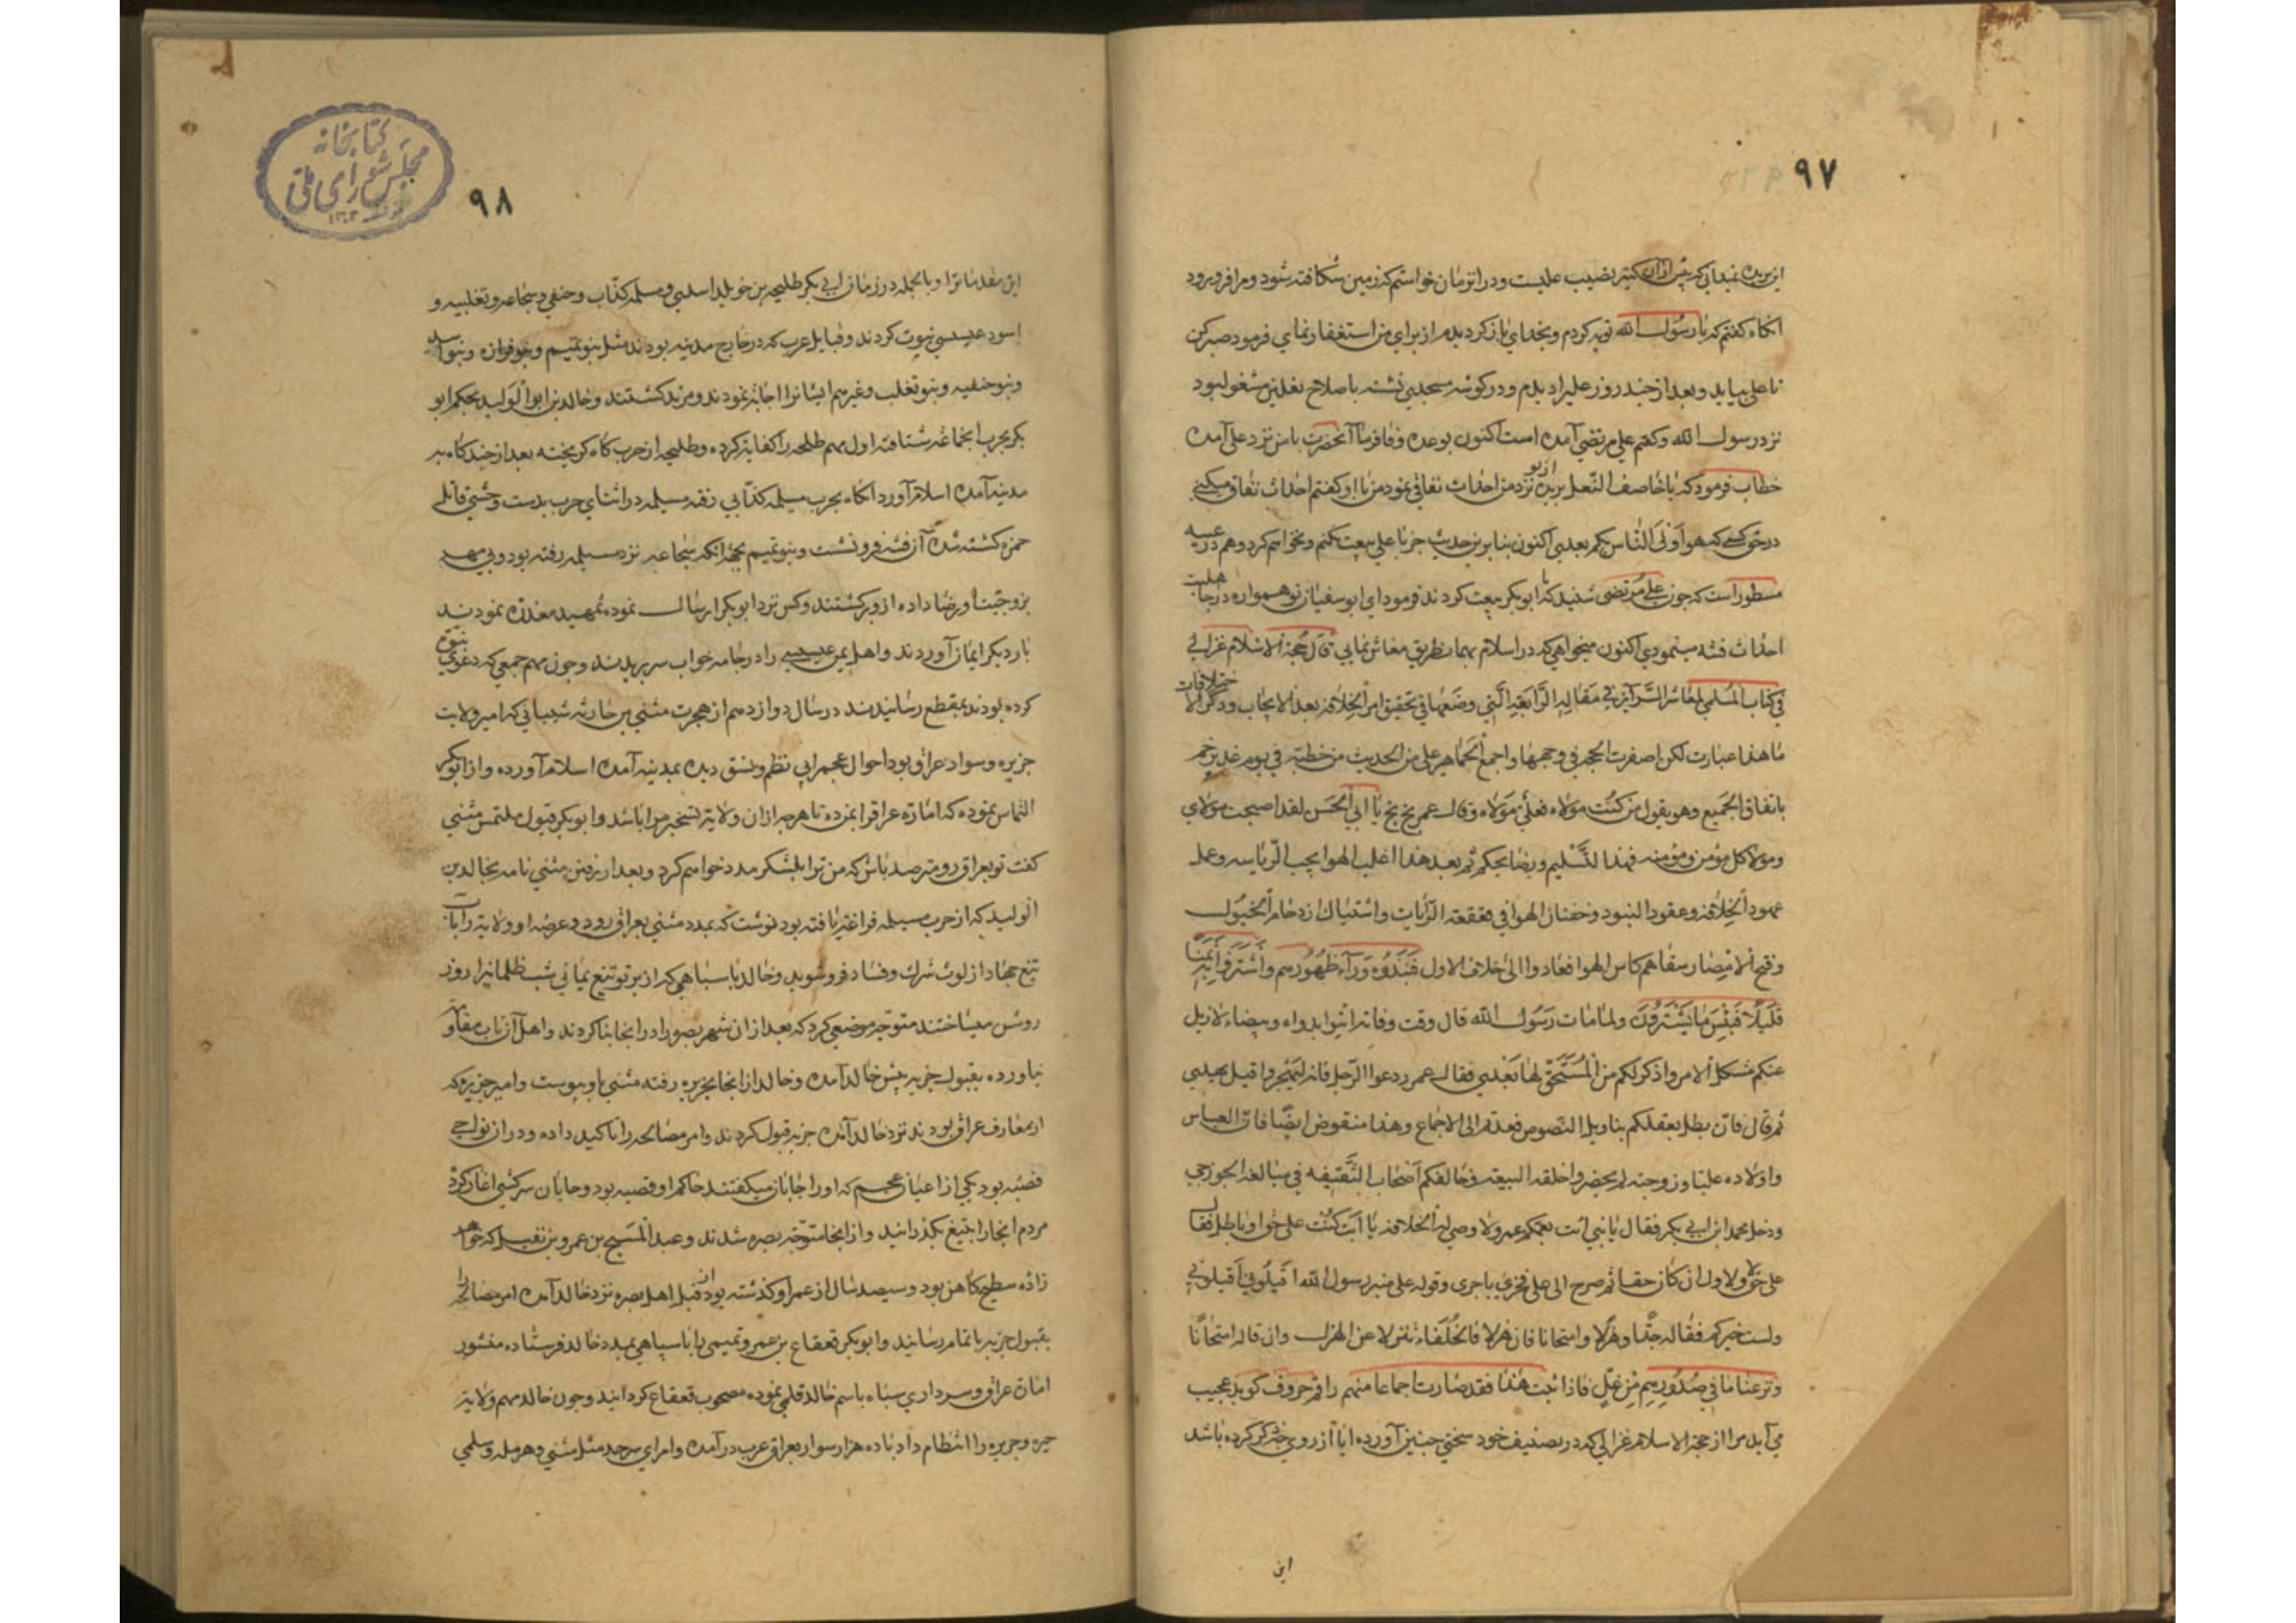 ۹۷
ای بریده نمیدانی که بیش ازان کنیز نصیب علیست ودرانزمان خواستم که زمین شکافته شود ومرا فرو برود
انکاه کفتم که یا رسول الله توبه کردم وبخدای باز کردیدم از برای من استغفار نمای فرمود صبر کن
تا علی بیاید وبعد از چند روز علیرا دیدم ودر کوشه مسجدی نشسته باصلاح نعلین مشغول بود
نزد رسول الله وکفتم علی مرتضی آمده است اکنون بوعده وفا فرما آنحضرت باس نزد علی آمده
خطاب فرمود که یا خاصف النعل بریده از تو نزد من احداث نفاقی نمود من با او کفتم احداث نفاق میکنی
در حق کسی که هو اولی الناس بکم بعدی اکنون بنا برین حدیث جز با علی بیعت نکنم ونخواهم کرد وهم در
مسطور است که چون علی مرتضی شنید که با ابو بکر بیعت کردند فرمود ای ابو سفیان تو همواره در جاهلیت
احداث فتنه مینمودی اکنون میخواهی که در اسلام بهمان طریق معاش نمایی قال حجة الاسلام غزالی
فی کتاب المسلمی فی مقالة الرابعة التی وضعها فی تحقیق امر الخلافة بعد الابحاث وذکر الاختلافات
ما هذا عبارت لکن اصفرت الحجة فی وجهها واجمع الجماهیر علی من الحدیث من خطبته فی یوم غدیر خم
باتفاق الجمیع وهو یقول من کنت مولاه فعلی مولاه وقال عمر بخ بخ یا ابی الحسن لقد اصبحت مولای
ومولا کل مؤمن ومؤمنه فهذا لتسلیم ورضا بحکم ثم بعد هذا اغلب الهوا بحب الریاسه وحمل
عمود الخلافة وعقود البنود وخفقان الهوا فی قعقعة الرایات واشتباک ازدحام الخیول
وفتح الامصار سقاهم کاس الهوا فعادوا الی خلاف الاول فنبذوه وراء ظهورهم واشتروا به ثمنا
قلیلا فبئس ما یشترون ولما مات رسول الله قال وقت وفاته ائتوا بدواة وبیضاء لازیل
عنکم مشکل الامر واذکر لکم من المستحق لها بعدی فقال عمر دعوا الرجل فانه لیهجر وقیل یهدی
ثم قال فان بطل بعقلکم بتاویل النصوص فعدتم الی الاجماع وهذا منقوض ایضا فان العباس
واولاده علیا وزوجته لم یحضروا حلقة البیعة وخالفکم اصحاب السقیفه فی مبالغة الخزرجی
ودخل محمد ابن ابی بکر فقال یا نبی ائت بعمک عمر ولا وصی له الخلافة یا ابت کنت علی حق او باطل فقال
علی حق ولاول ان کان حقا ثم صرح الی علی فخری ما جری وقوله علی منبر رسول الله اقیلونی اقیلونی
ولست خیرکم فقاله جدا وهزلا وامتحانا فان هزلا فالخلفاء تنزلا عن الهزل وان قاله امتحانا
ونزعنا ما فی صدورهم من غل فاذا ثبت هذا فقد صارت اجماعا منهم راقم حروف کوید عجیب
می آید مرا از حجة الاسلام غزالی که در تصنیف خود سخنی چنین آورده ایا از روی ذکر کرده باشد
این
کتابخانه
مجلس شورای ملی
۱۳۰۲
۹۸
این مقدماترا وبالجمله در زمان ابی بکر طلیحه بن خویلد اسدی ومسیلمه کذاب وحنفی وسجاعه وتغلبیه و
اسود عنسی نبوت کردند وقبایل عرب که در خارج مدینه بودند مثل بنو تمیم وبنو فزاره وبنو اسد
وبنو حنفیه وبنو تغلب وغیرهم ایشانرا اجابة نمودند ومرتد کشتند وخالد بن ابو الولید بحکم ابو
بکر بحرب انجماعة شتافته اول مهم طلحه را کفایة کرده وطلیحه از حرب کاه کریخته بعد از چند کاه به
مدینه آمده اسلام آورد انکاه بحرب مسیلمه کذابی رفته مسیلمه در اثنای حرب بدست وحشی قاتل
حمزه کشته شده آن فتنه فرو نشست وبنو تمیم بجهة انکه سجاعه نزد مسیلمه رفته بود وبی مهر
بزوجیت او رضا داده ازو برکشتند وکس نزد ابو بکر ارسال نموده تمهید معذرة نمودند
بار دیکر ایمان آوردند واهل یمن عیسی را در جامه خواب سر بریدند وچون مهم جمعی که دعوی نبوة
کرده بودند بمقطع رسانیدند در سال دوازدهم از هجرت مثنی بن حارثه شیبانی که امیر ولایت
جزیره وسواد عراق بود احوال عجم را بی نظم ونسق دیده بمدینه آمده اسلام آورده واز ابو بکر
التماس نموده که امارة عراقرا بمن ده تا هرچه ازان ولایة تسخیر مرا باشد وابو بکر قبول ملتمس مثنی
کفت تو بعراق رو مترصد باش که من ترا بلشکر مدد خواهم کرد وبعد از رفتن مثنی نامه بخالد بن
الولید که از حرب مسیلمه فراغة یافته بود نوشت که بمدد مثنی بعراق رود وعرصه او ولایة را بآب
تیغ جهاد از لوث شرک وفساد فرو شوید وخالد با سپاهی که از پرتو تیغ یمانی شب ظلمانیرا روز
روشن میساختند متوجه موضعی کرد که بعد ازان شهر بصره را در انجا بنا کردند واهل آن تاب مقاومة
نیاورده بقبول جزیه پیش خالد آمده وخالد از انجا بجزیره رفته مثنی باو پیوست وامیر جزیره که
از معارف عراق بودند نزد خالد آمده جزیه قبول کردند وامر مصالحه را تاکید داده ودر ان نواحی
قصبه بود یکی از اعیان عجم که اورا جابان میکفتند حاکم او قصبه بود وجابان سرکشی اغاز کرد
مردم انجارا بتیغ بکذرانید واز انجا متوجه بصره شدند وعبد المسیح بن عمرو بن نفیله که خواهر
زاده سطیح کاهن بود وسیصد سال از عمر او کذشته بود از قبل اهل بصره نزد خالد آمده امر مصالحه را
بقبول جزیه باتمام رسانید وابو بکر قعقاع بن عمرو تمیمی را با سپاهی بمدد خالد فرستاده منشور
امارة عراق وسرداری سپاه باسم خالد قلمی نموده مصحوب قعقاع کردانید وچون خالد مهم ولایة
حیره وجزیره را انتظام داد با ده هزار سوار بعراق عرب در آمده وامرای سرحد مثل مثنی وهرمله وسلمی